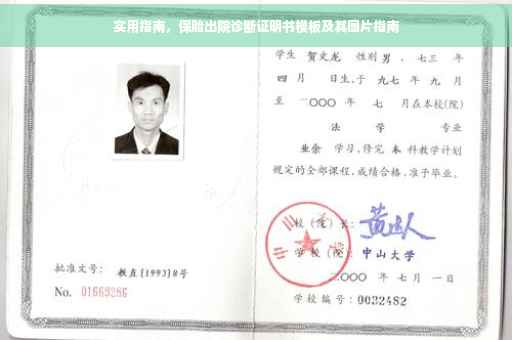 实用指南，保险出院诊断证明书模板及其图片指南
学生 贺文龙 性别 男 、七三 年
四 月 日生,于 九七 年 九 月
至 二〇〇〇 年 七 月在本校(院)
法 学 专业
业余 学习,修完 本 科教学计划
规定的全部课程,成绩合格,准予毕业。
校 (院) 长:
学 校 (院): 中山大学
二〇〇〇 年 七 月 一 日
学校编号: 0032482
批准文号: 教直[1993]8号
No. 01669286